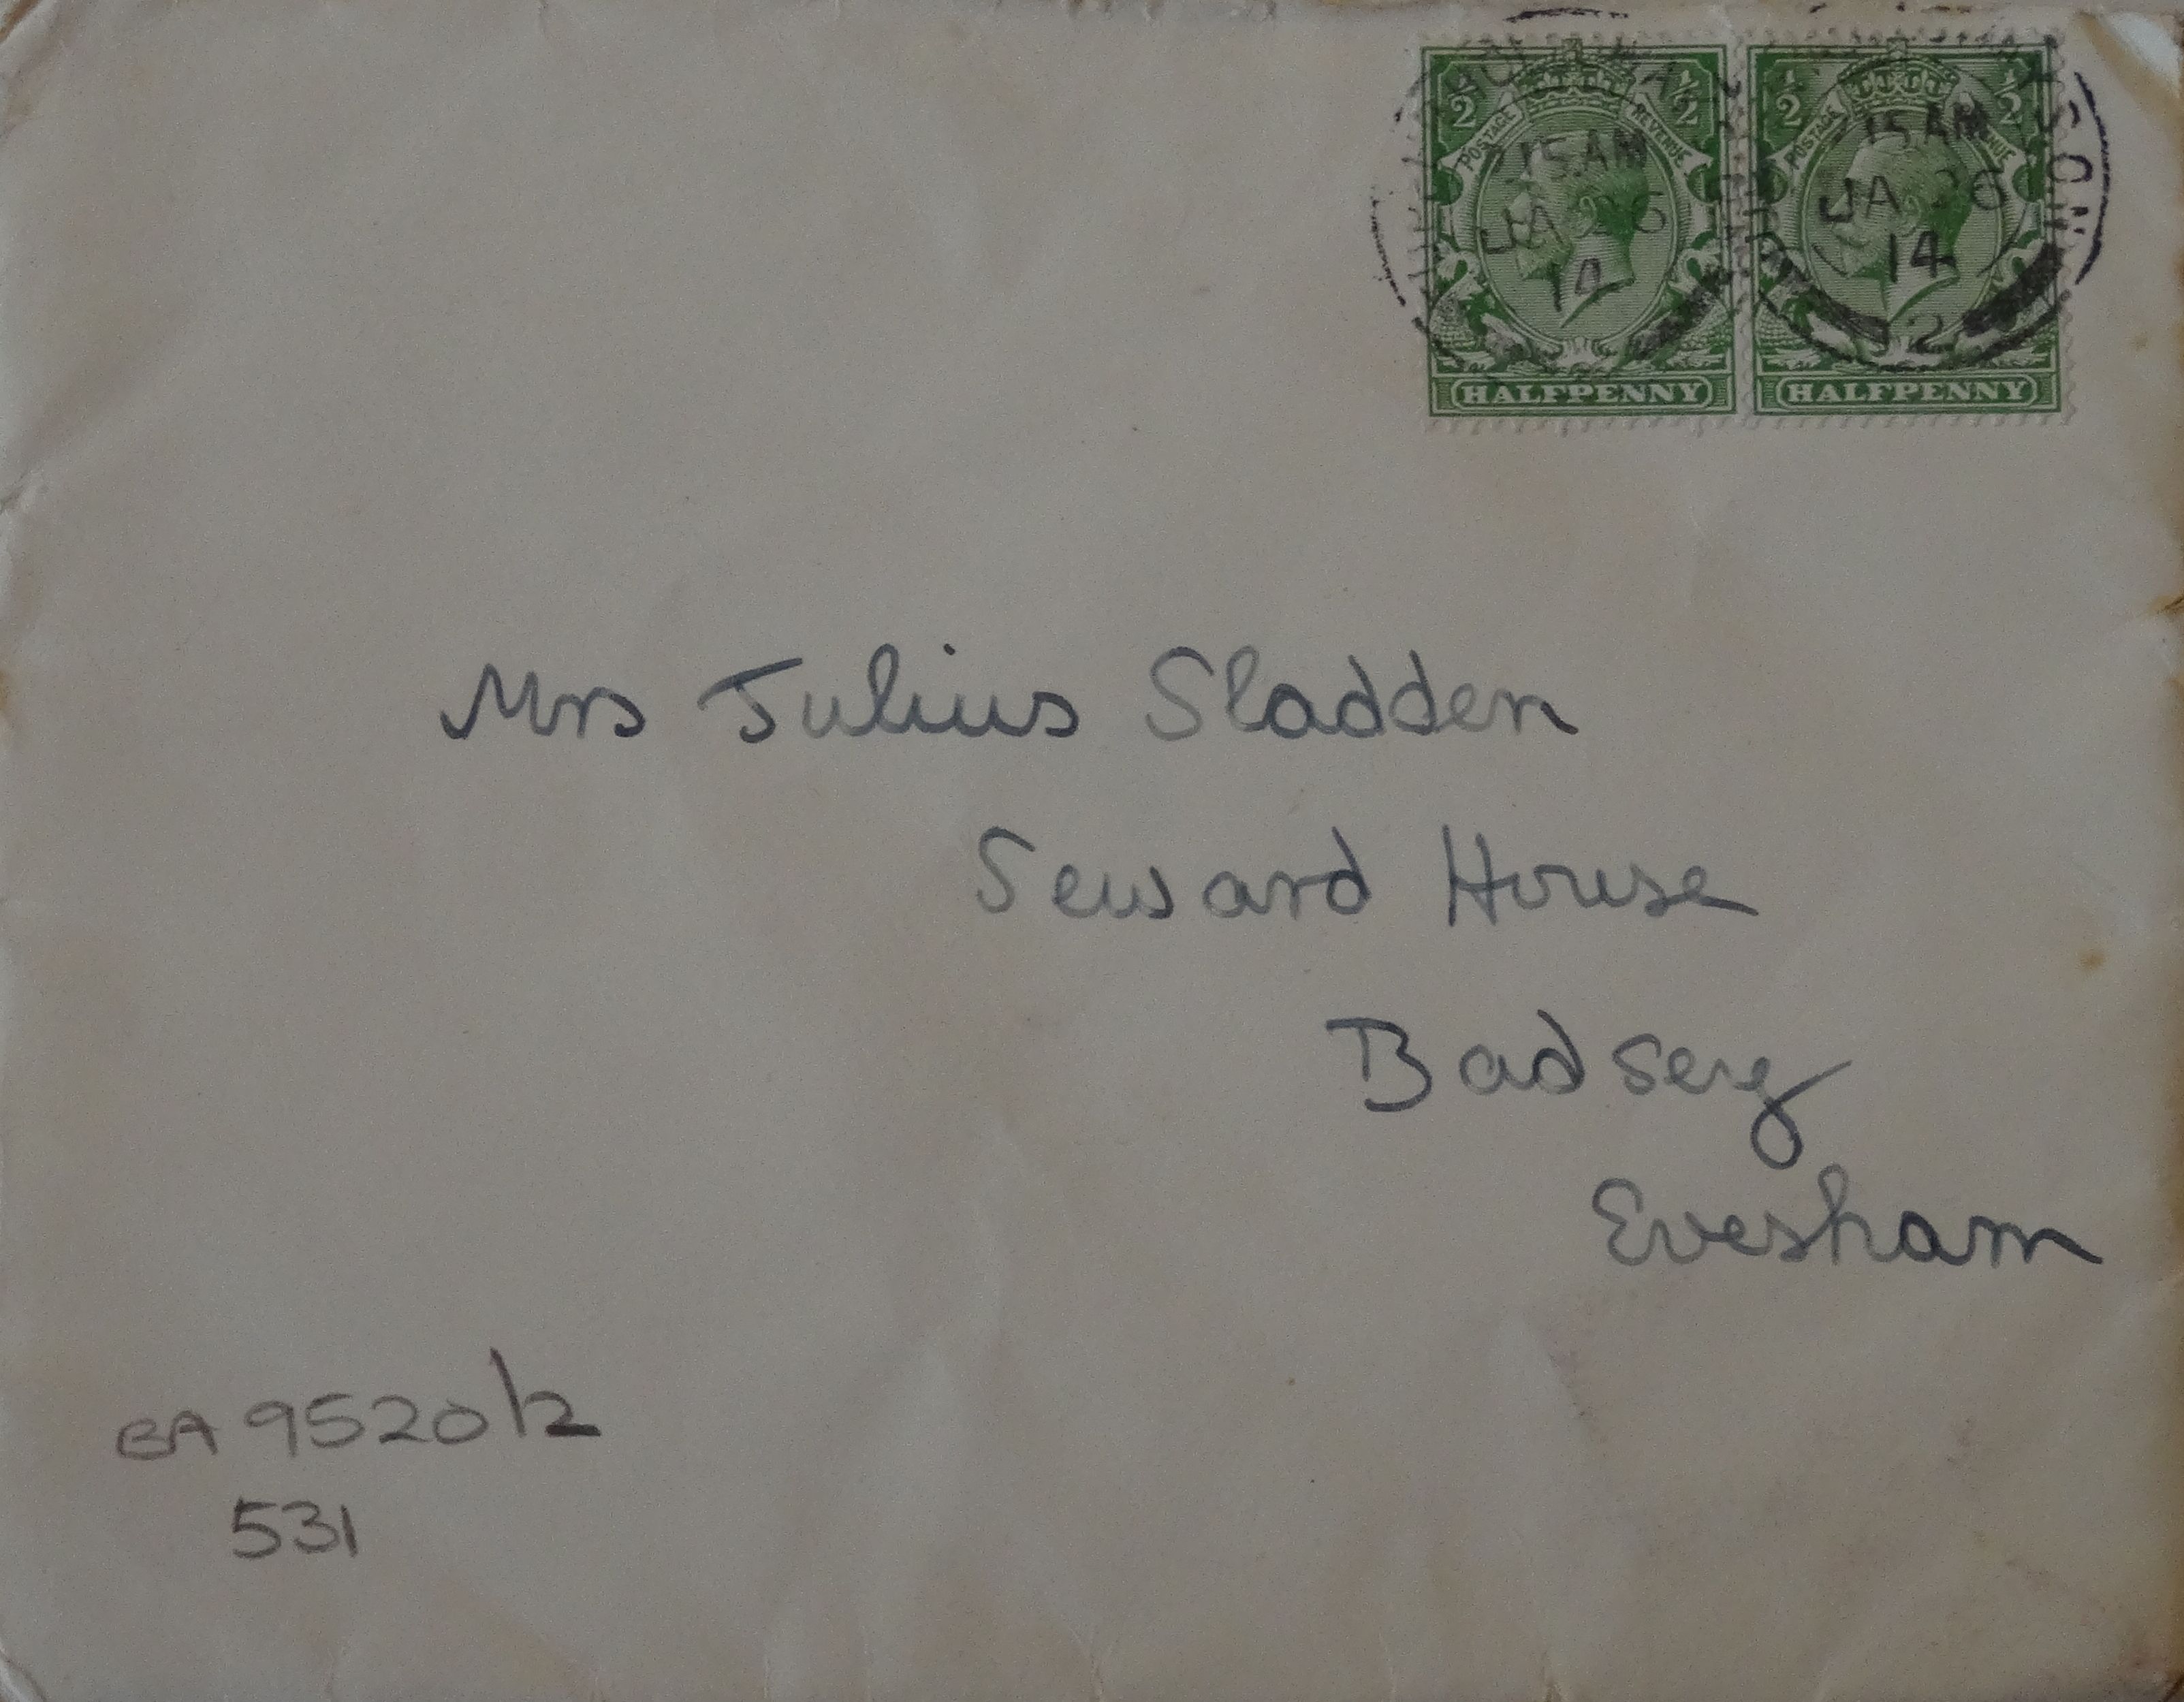 ½ POSTAGE REVENUE ½
15 AM
JA 26
14
HALFPENNY
½ POSTAGE ½
15 AM
JA 26
14
2
HALFPENNY
Mrs Julius Sladden
Seward House
Badsey
Evesham
BA 9520/2
531